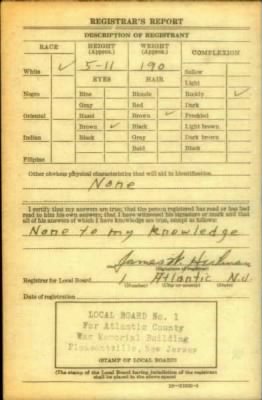 REGISTRAR'S REPORT
DESCRIPTION OF REGISTRANT
RACE HEIGHT (Approx.) WEIGHT (Approx.) COMPLEXION
White ✓ 5-11 190 Sallow
EYES HAIR Light
Negro Blue Blonde Ruddy ✓
Gray Red Dark
Oriental Hazel Brown ✓ Freckled
Brown ✓ Black Light brown
Indian Black Gray Dark brown
Bald Black
Filipino
Other obvious physical characteristics that will aid in identification.
None
I certify that my answers are true; that the person registered has read or has had
read to him his own answers; that I have witnessed his signature or mark and that
all of his answers of which I have knowledge are true, except as follows:
None to my knowledge
James
(Signature of registrar)
Registrar for Local Board 1 Atlantic N.J
(Number) (City or county) (State)
Date of registration
LOCAL BOARD No. 1
For Atlantic County
War Memorial Building
Pleasantville, New Jersey
(STAMP OF LOCAL BOARD)
(The stamp of the Local Board having jurisdiction of the registrant
shall be placed in the above space)